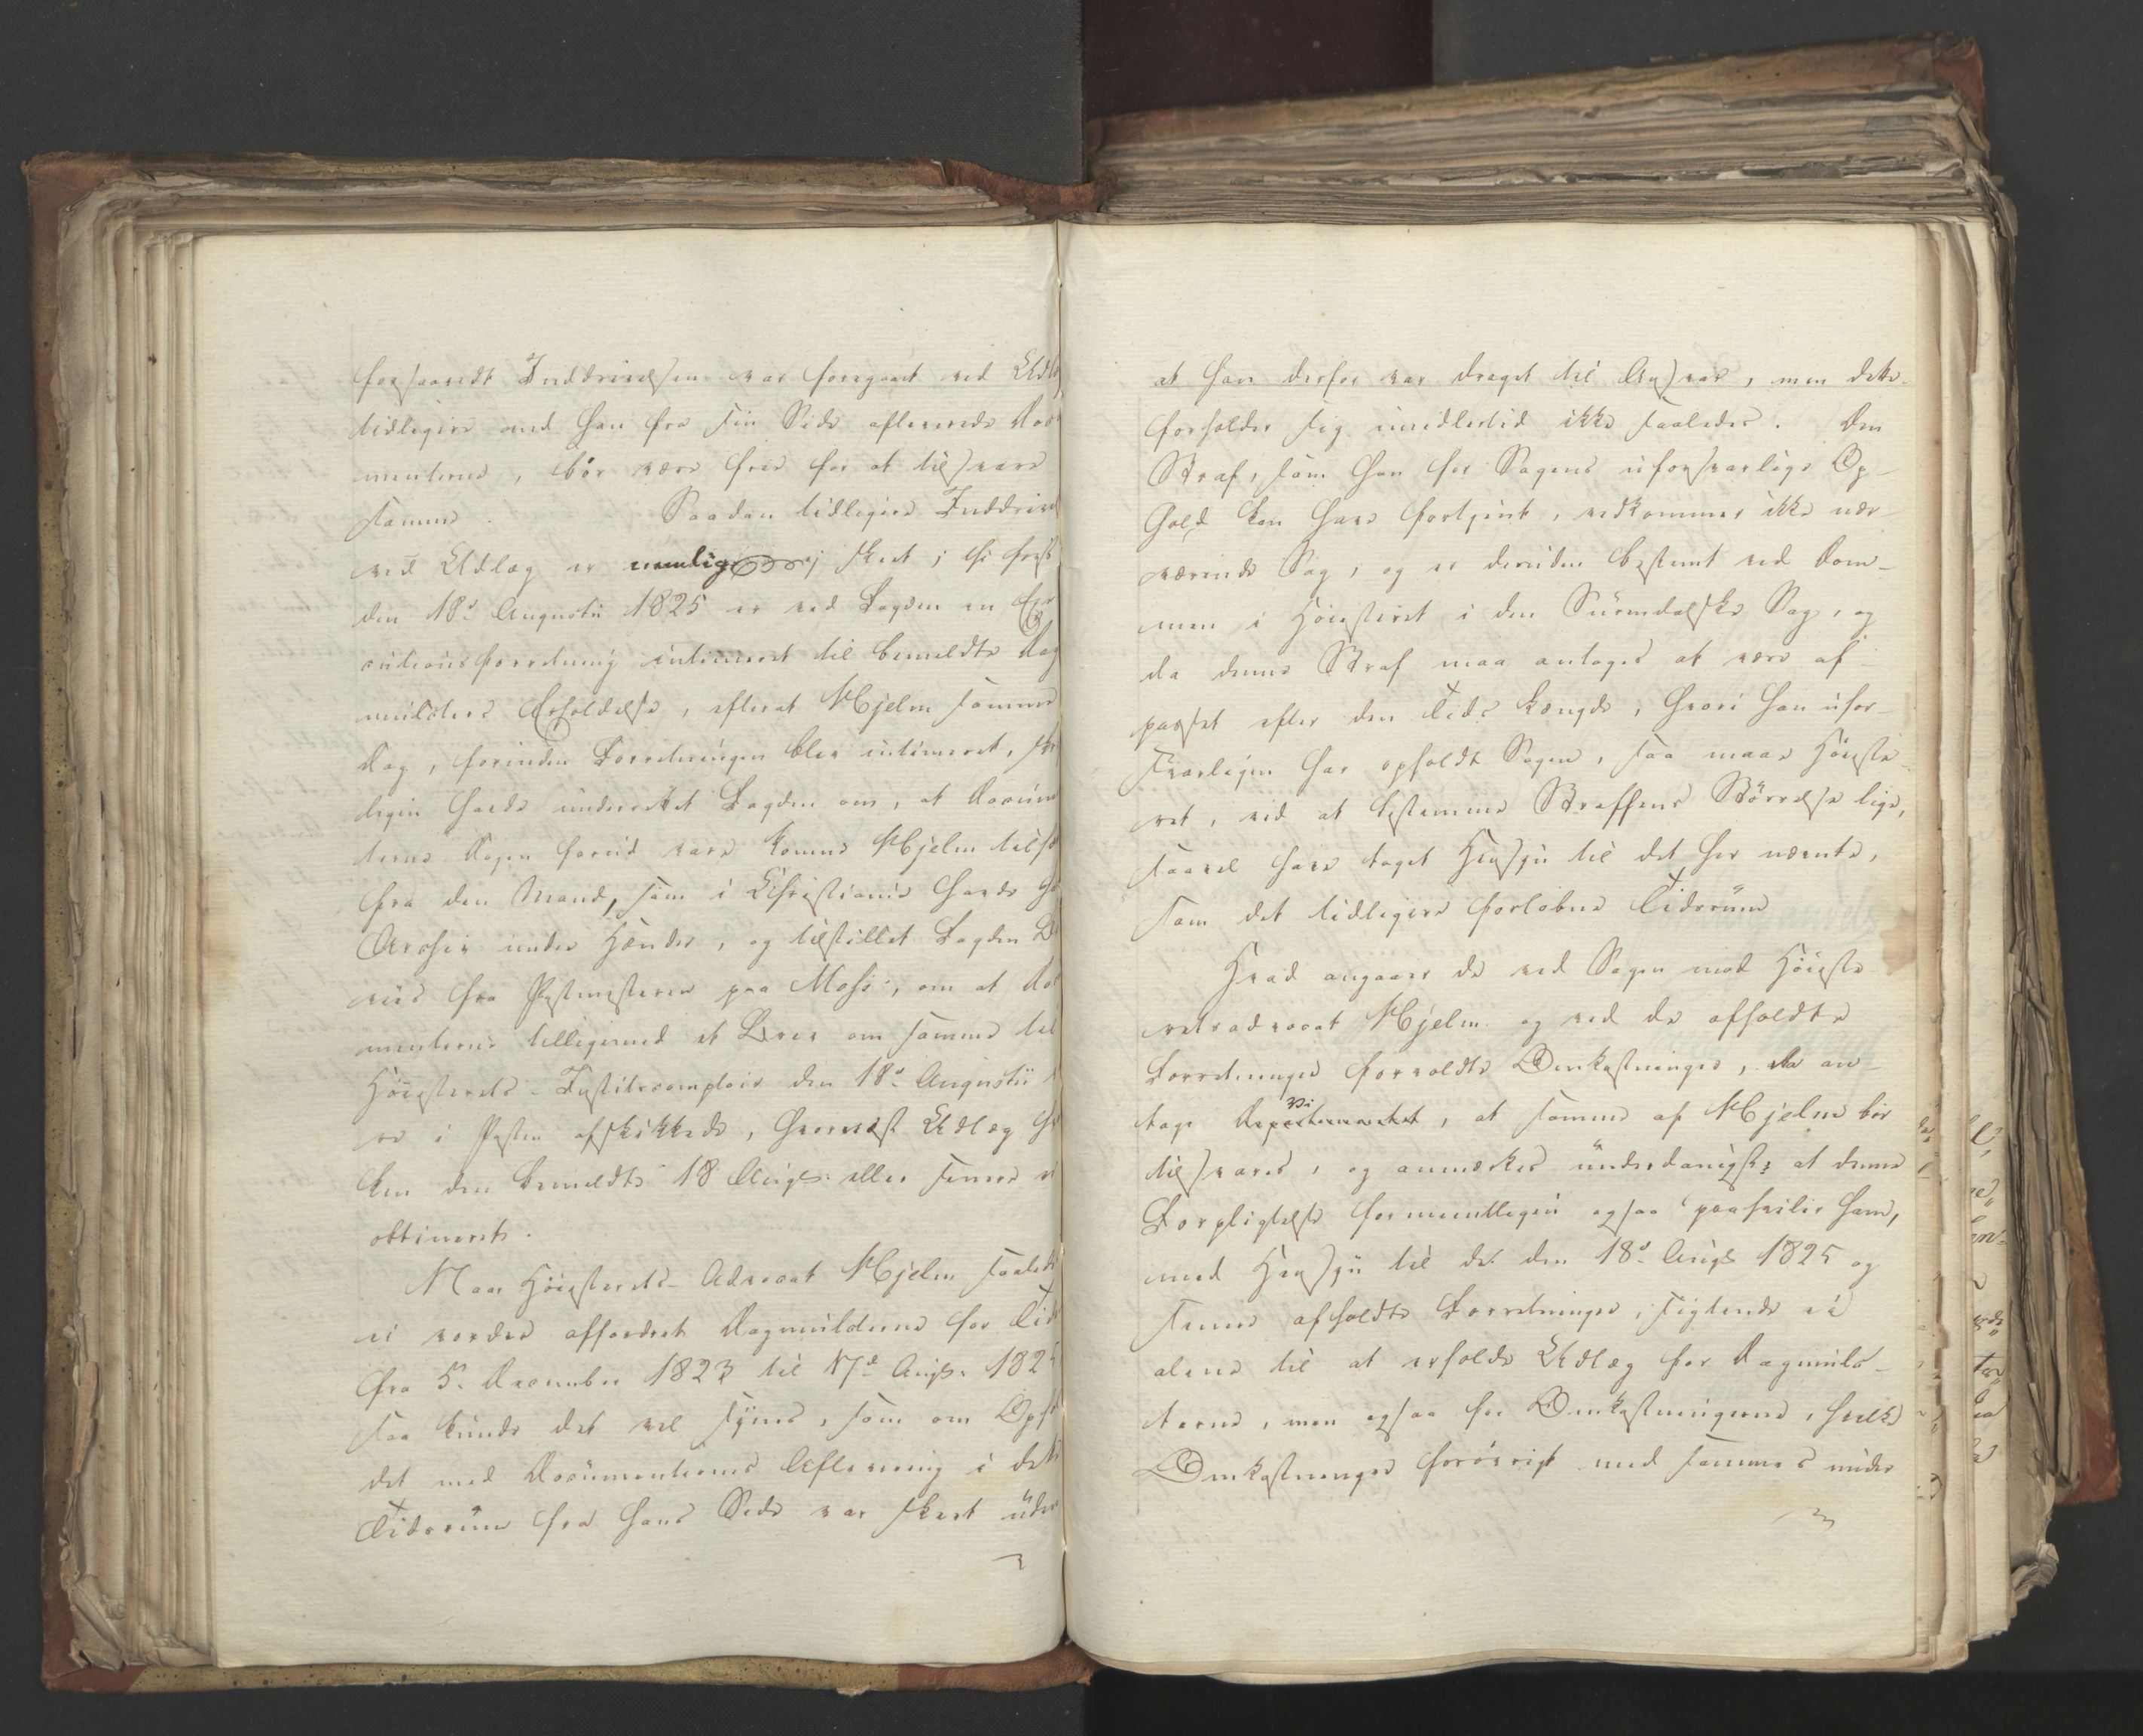 forsaavidt Inddrivelsen var foregaaet ved Udlæ
tidligere end han fra sin Side afleverede Docu
menterne, bør være frie for at tilsvare
samme. Saadan tidligere Inddrivel
ved Udlæg er nemlig ej skeet; thi først
den 18de Augustii 1825 er ved Fogden en Exe
cutionsforretning intimeret til bemeldte Dag
mulcters Erholdelse, efterat Hjelm samme
Dag, forinden Forretningen blev intimeret,
ligen havde underrettet Fogden om, at Docum
terne Dagen forud vare komne Hjelm tilst
fra den Mand, som i Christiania havde
Archiv under Hænder, og tilstillet Fogden B
viis fra Postmesteren paa Moss, om at Do
menterne tilligemed et Brev om samme til
Høiesterets-Justitscomptoir den 18de Augustii
re i Posten afskikkede, hvornæst Udlæg h
ken den bemeldte 18 Augt. eller senere
obtineret.
Naar Høiesterets-Advocat Hjelm saalede
ei vorder affordret Dagmulcterne for Tid
fra 5te December 1823 til 17de Augt. 182
saa kunde det vel synes, som om Opho
det med Documenternes Aflevering i dett
Tidsrum fra hans Side var skeet uden
at han derfor var draget til Ansvar, men dette
forholder sig imidlertid ikke saaledes. Den
Straf, som han for Sagens uforsvarlige Op-
hold kan have fortjent, vedkommer ikke nær-
værende Sag, og er desuden bestemt ved Dom-
men i Høiesteret i den Surendalske Sag, og
da denne Straf maa antages at være af-
passet efter den Tids Længde, hvori han ufor-
svarligen har opholdt Sagen, saa maae Høieste-
ret, ved at bestemme Straffens Størrelse lige,
saavel have taget Hensyn til det her nævnte,
som det tidligere forløbne Tidsrum
Hvad angaaer de ved Sagen mod Høieste-
retsadvocat Hjelm og ved de afholdte
Forretninger forvoldte Omkostninger, da an-
tage vi Departementet, at samme af Hjelm bør
tilsvares, og anmærkes underdanigst, at denne
Forpligtelse formeentligen ogsaa paahviler ham,
med Hensyn til det den 18de Augt 1825 og
senere afholdte Forretninger, sigtende ei
alene til at erholde Udlæg for Dagmulc-
terne, men ogsaa for Omkostningerne, hvilke
Omkostninger forøvrigt med sammes under